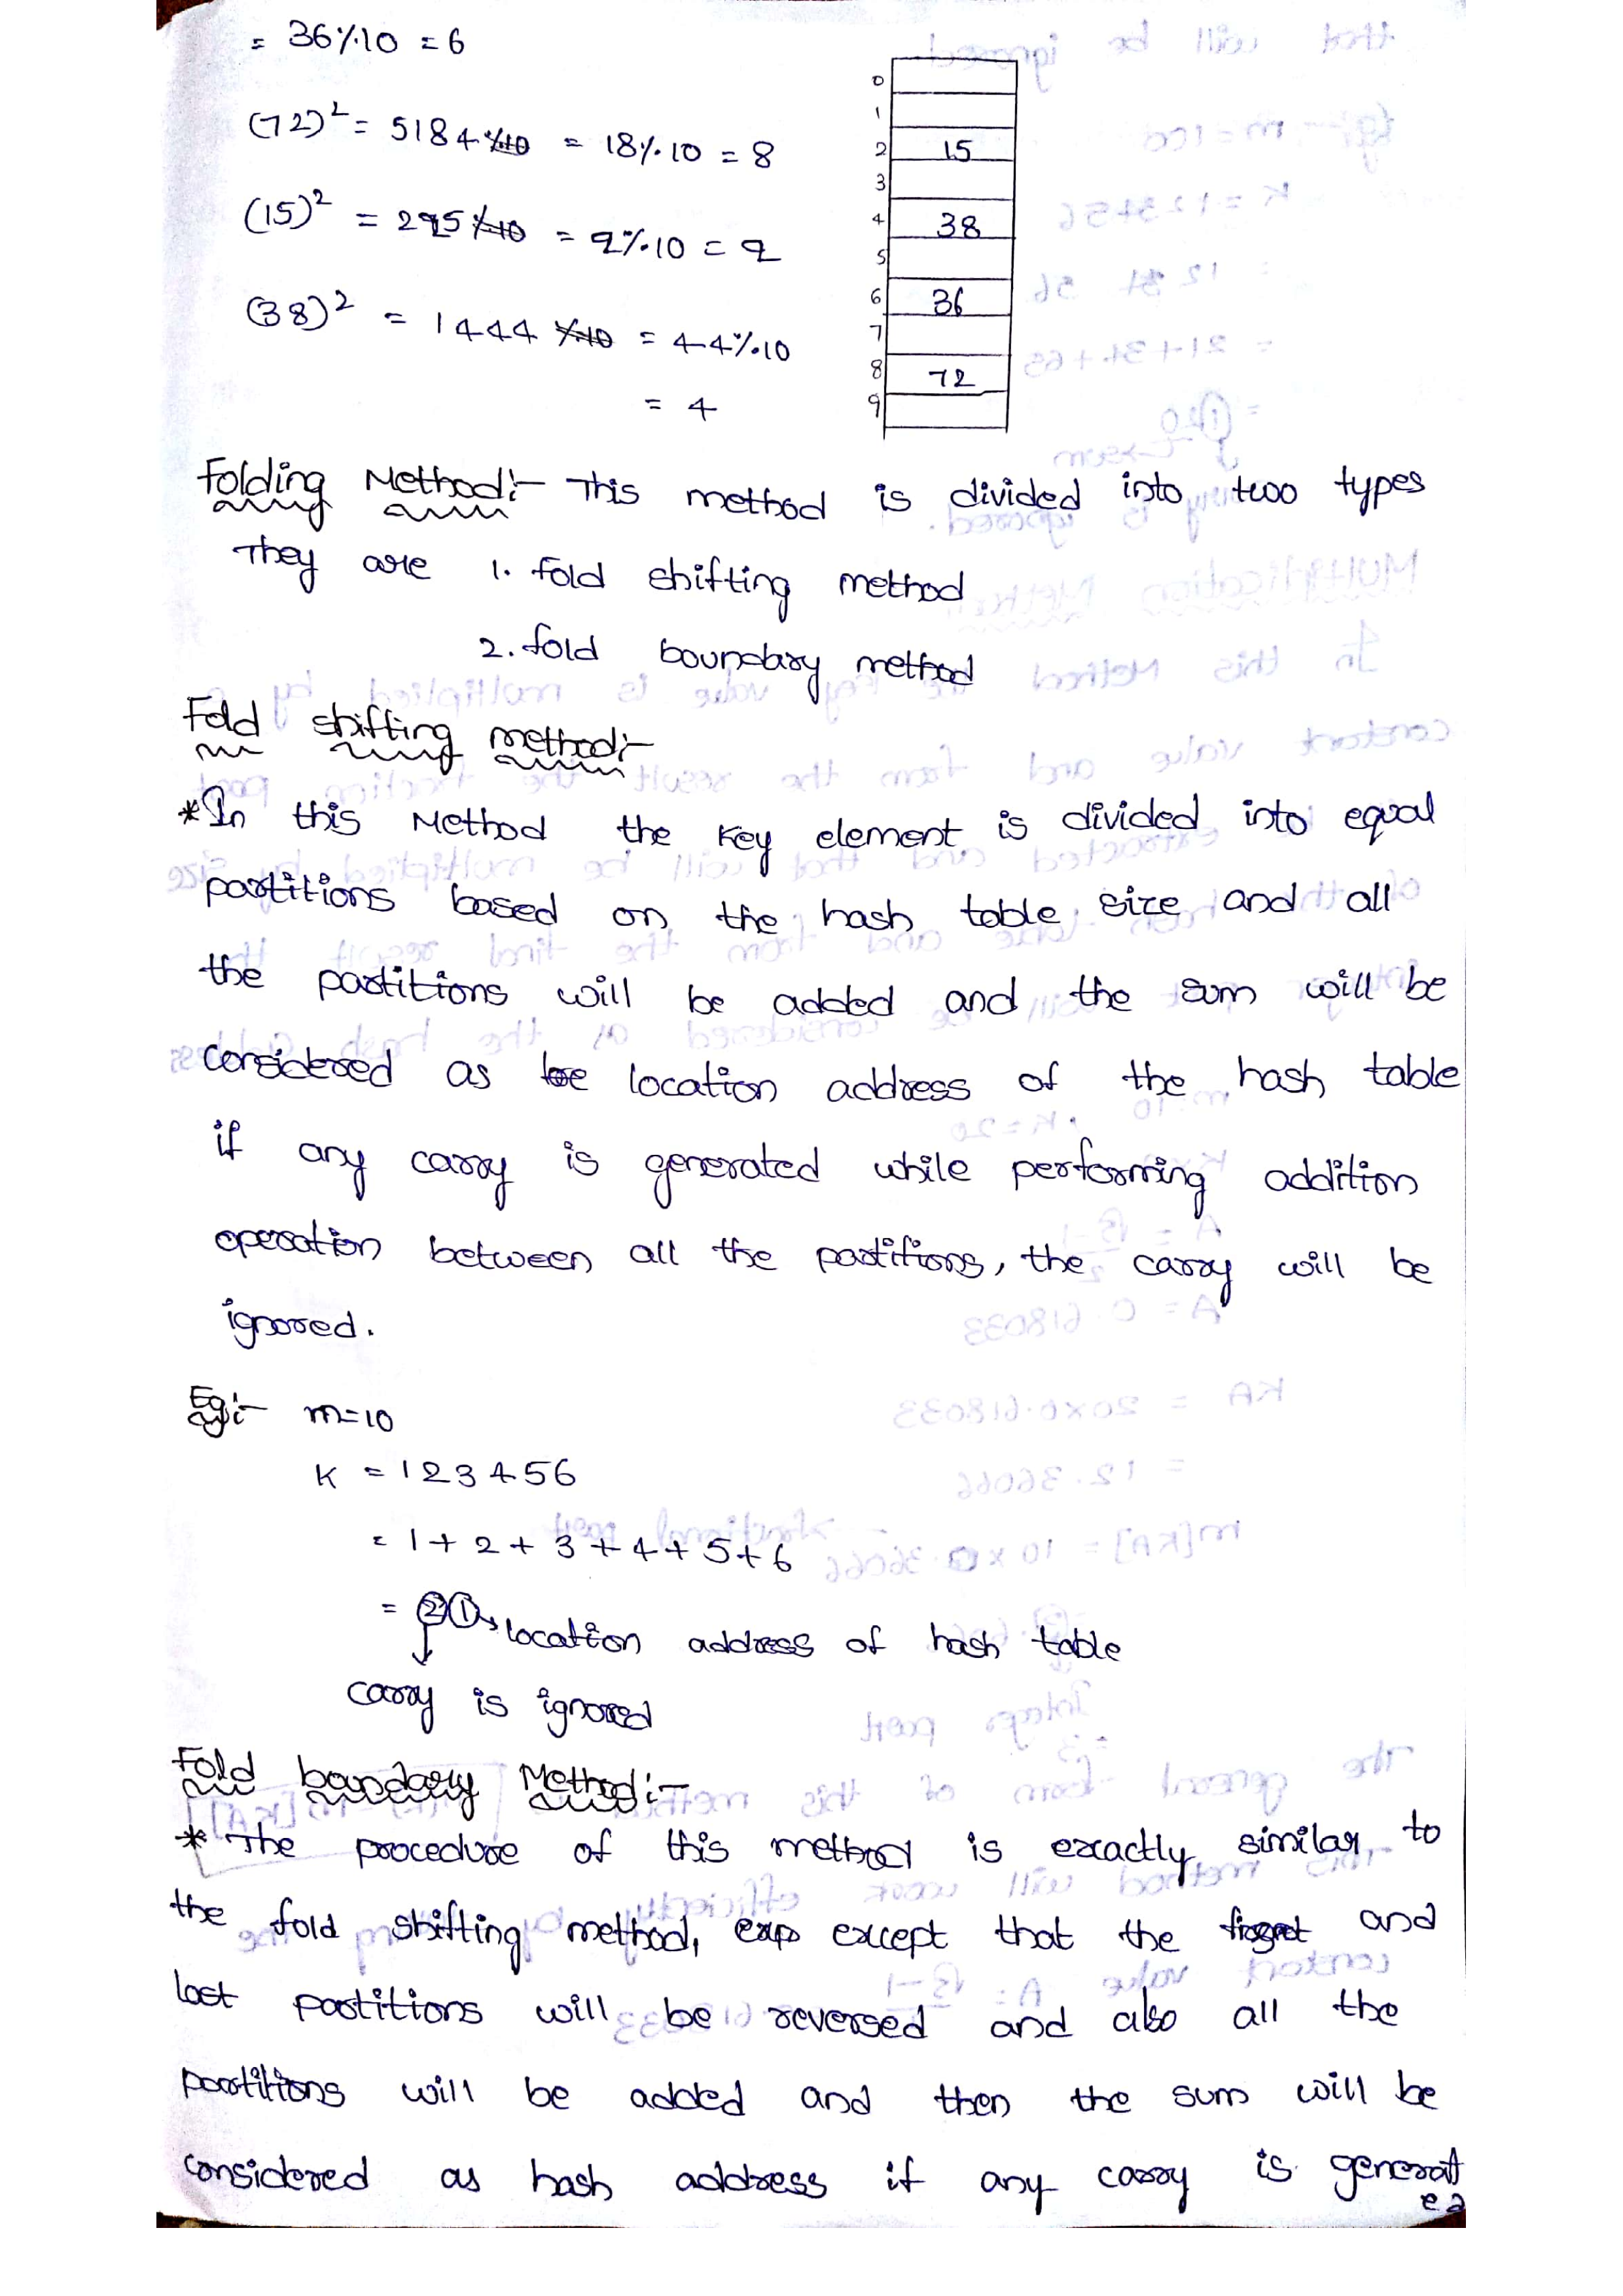 = 36%10 = 6
(72)² = 5184 %10 = 18%10 = 8
(15)² = 225 %10 = 2%10 = 2
(38)² = 1444 %10 = 44%10
= 4
0
1
2 15
3
4 38
5
6 36
7
8 72
9
Folding Method:- This method is divided into two types
They are 1. fold shifting method
2. fold boundary method
Fold shifting method:-
*In this Method the key element is divided into equal
partitions based on the hash table size and all
the partitions will be added and the sum will be
considered as location address of the hash table
if any carry is generated while performing addition
operation between all the partitions, the carry will be
ignored.
Eg:- m=10
K = 123456
= 1+2+3+4+5+6
= 21 → location address of hash table
carry is ignored
Fold boundary Method:-
* The procedure of this method is exactly similar to
the fold shifting method, exp except that the and
last partitions will be reversed and also all the
partitions will be added and then the sum will be
considered as hash address if any carry is generat
ed